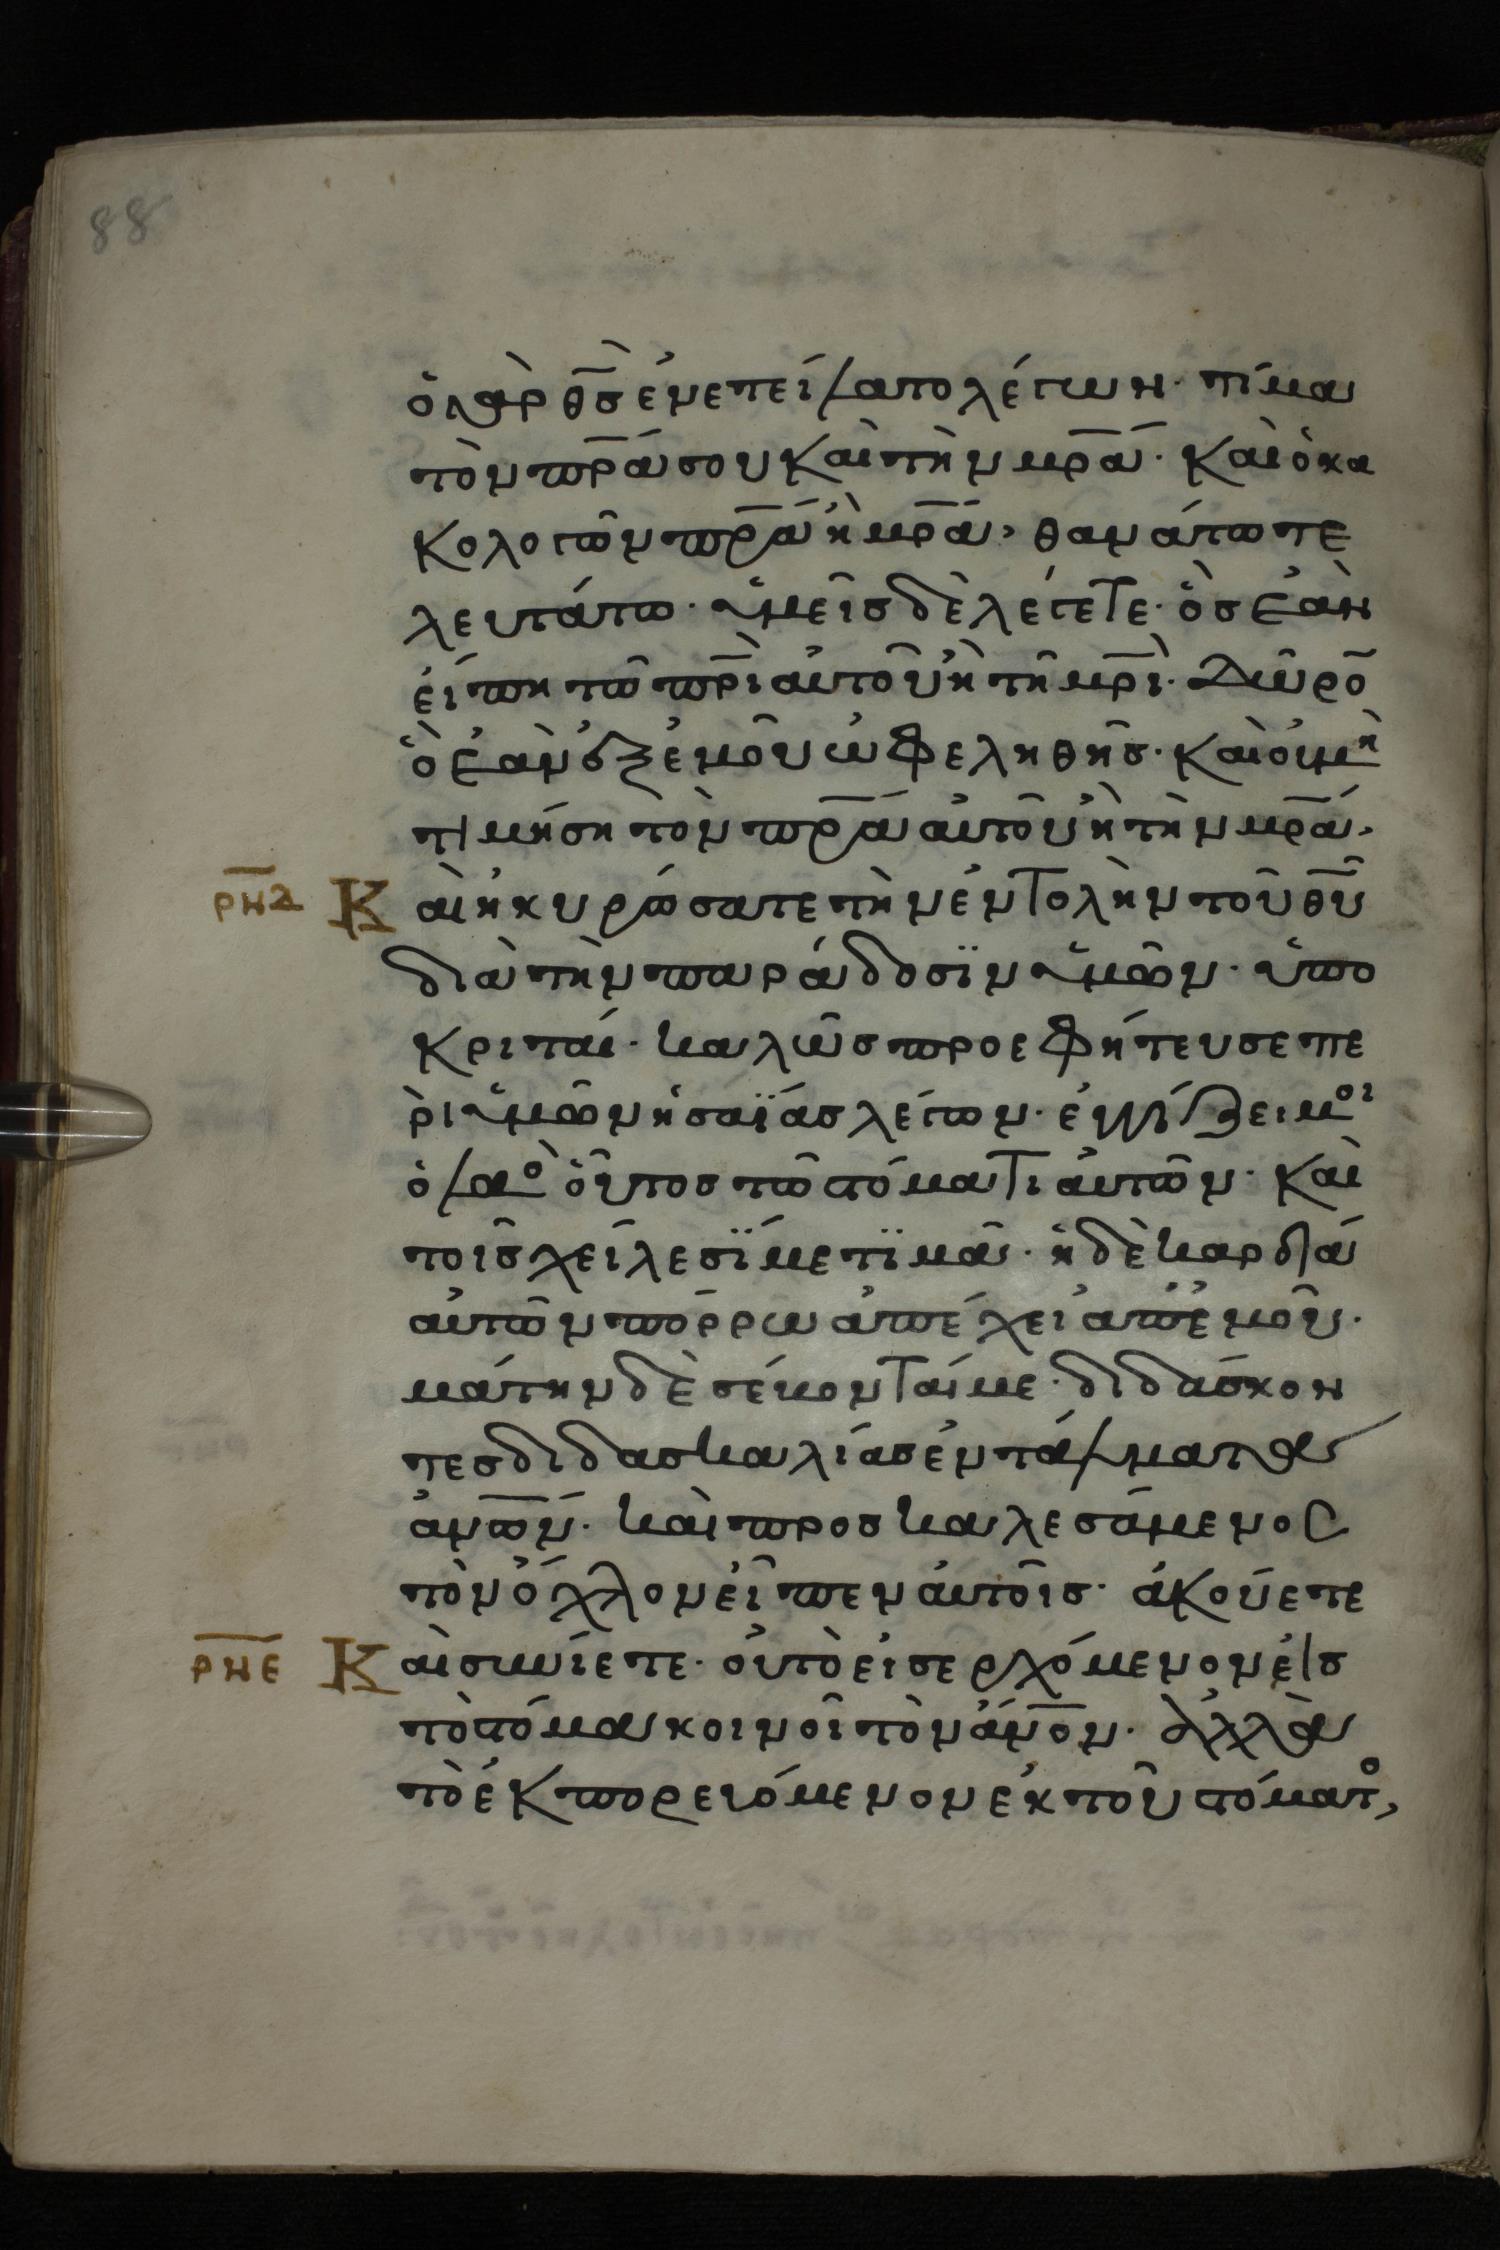 88
ὁ γὰρ θ̅ς̅ ἐνετείλατο λέγων· τίμα
τὸν π̅ρ̅α̅ σου καὶ τὴν μ̅ρ̅α̅· καὶ ὁ κα
κολογῶν π̅ρ̅α̅ ἢ μ̅ρ̅α̅, θανάτω τε
λευτάτω· ὑμεῖς δὲ λέγετε· ὃς ἐὰν
εἴπη τῶ π̅ρ̅ι̅ αὐτοῦ ἢ τῆ μ̅ρ̅ι̅· δῶρο̅
ὃ ἐὰν ἐξ ἐμοῦ ὠφεληθῆς· καὶ οὐ μὴ
τιμήση τὸν π̅ρ̅α̅ αὐτοῦ ἢ τὴν μ̅ρ̅α̅,
ρ̅ν̅δ̅ Καὶ ἠκυρώσατε τὴν ἐντολὴν τοῦ θ̅υ̅
διὰ τὴν παράδοσϊν ὑμῶν· ὑπο
κριταί· καλῶς προεφήτευσε πε
ρὶ ὑμῶν ἡσαΐας λέγων· ἐγγίζει μοι
ὁ λαὸ οὗτος τῶ στόματι αὐτῶν· καὶ
τοῖς χείλεσΐ με τϊμᾶ· ἡ δὲ καρδία
αὐτῶν πόρρω ἀπέχει ἀπ' ἐμοῦ·
μάτην δὲ σέβονταί με· διδάσκον
τες διδασκαλίας ἐντάλματα
ἀν̅ω̅ν̅· καὶ προσκαλεσάμενος
τὸν ὄχλον εἶπεν αὐτοῖς· ἀκούετε
ρ̅ν̅ε̅ Καὶ συνίετε· οὐ τὸ εἰσερχόμενον εἰς
τὸ στόμα κοινοῖ τὸν ἄν̅ο̅ν̅· ἀλλὰ
τὸ ἐκπορευόμενον ἐκ τοῦ στόματο,